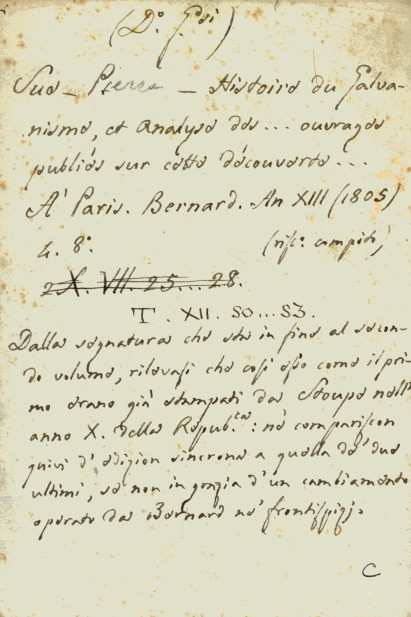 (D.º G.si)
Sue - Pierre - Histoire du Galva-
nisme, et Analyse des... ouvrages
publiés sur cette découverte...
A' Paris. Bernard. An XIII (1805)
4. 8.º (risc.º compito)
2X. VII. 25... 28.
T. XII. 50... 53.
Dalla segnatura che sta in fine al secon-
do volume, rilevasi che così esso come il pri-
mo erano già stampati da Stoupe nell'
anno X. della Repub.ca: nè compariscon
quivi d'edizion sincrona a quella de' due
ultimi, se non in grazia d'un cambiamento
operato da Bernard ne' frontispizj.
C